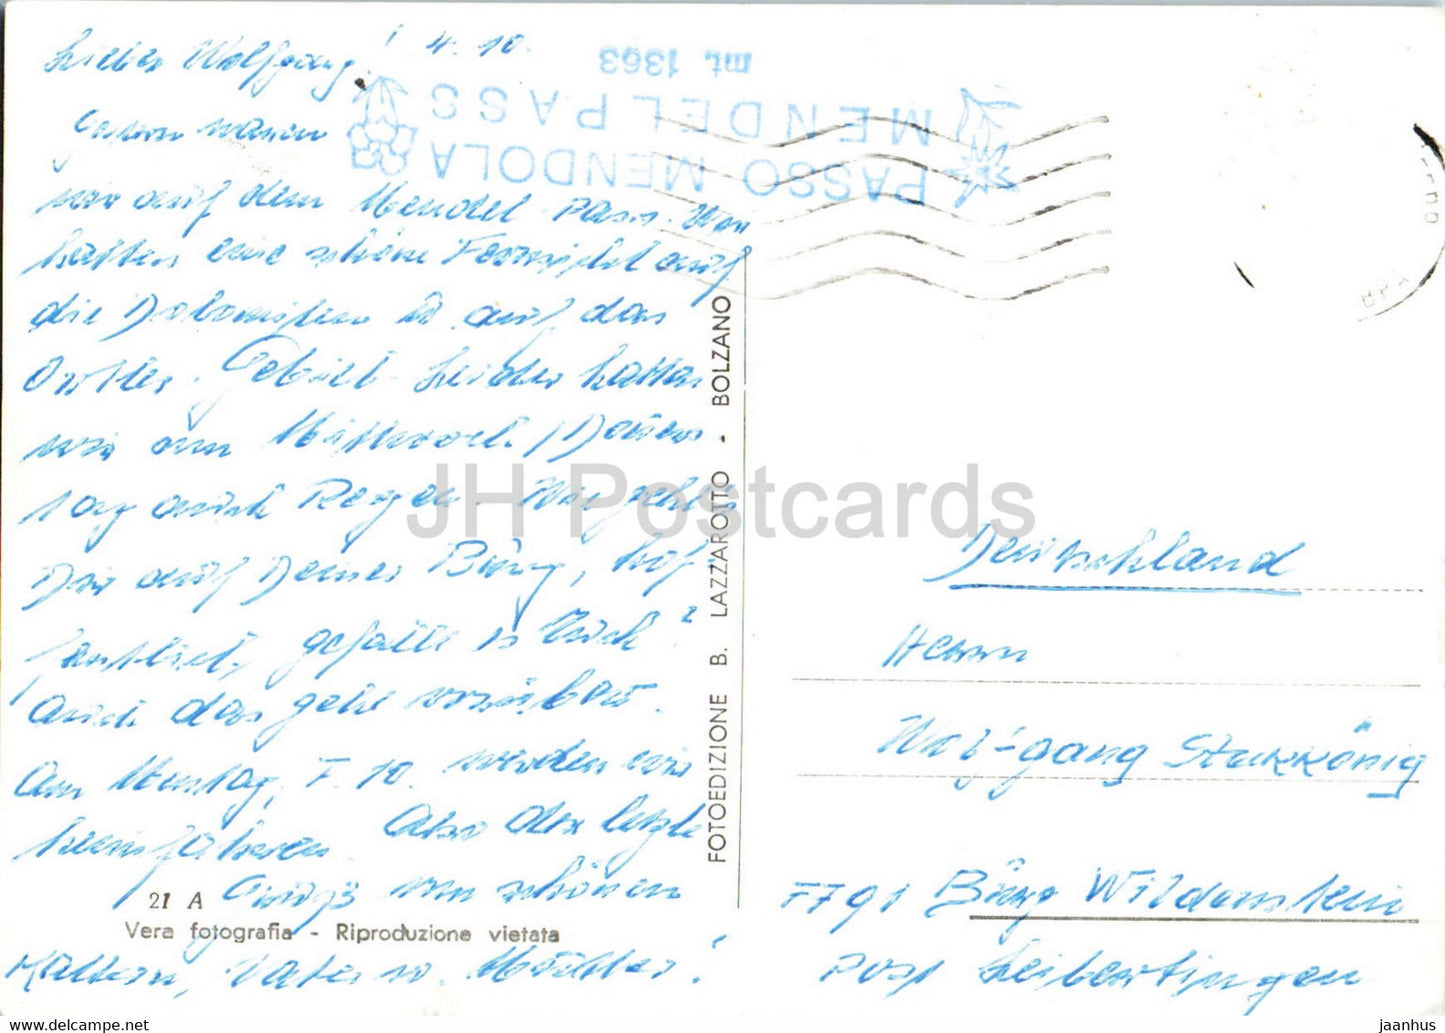 Lieber Wolfgang! 4. 10.
Gestern waren
wir auf dem Mendel-Pass. Wir
hatten eine schöne Fernsicht auf
die Dolomiten u. auf das
Ortler-Gebiet. Leider hatten
wir am Mittwoch/Donners-
tag auch Regen. Wie geht's
Dir auf Deiner Burg, hof-
fentlich gefällt es Euch?
Auch das geht vorüber.
Am Montag, 7. 10. werden wir
heimfahren. Also der letzte
Gruß vom schönen
Kaltern, Vater u. Mutter!
PASSO MENDOLA
MENDELPASS
mt. 1363
21 A
Vera fotografia - Riproduzione vietata
FOTOEDIZIONE B. LAZZAROTTO - BOLZANO
JH Postcards
Deutschland
Herrn
Wolfgang Starkkönig
7791 Burg Wildenstein
Post Leibertingen
jaanhus
www.delcampe.net